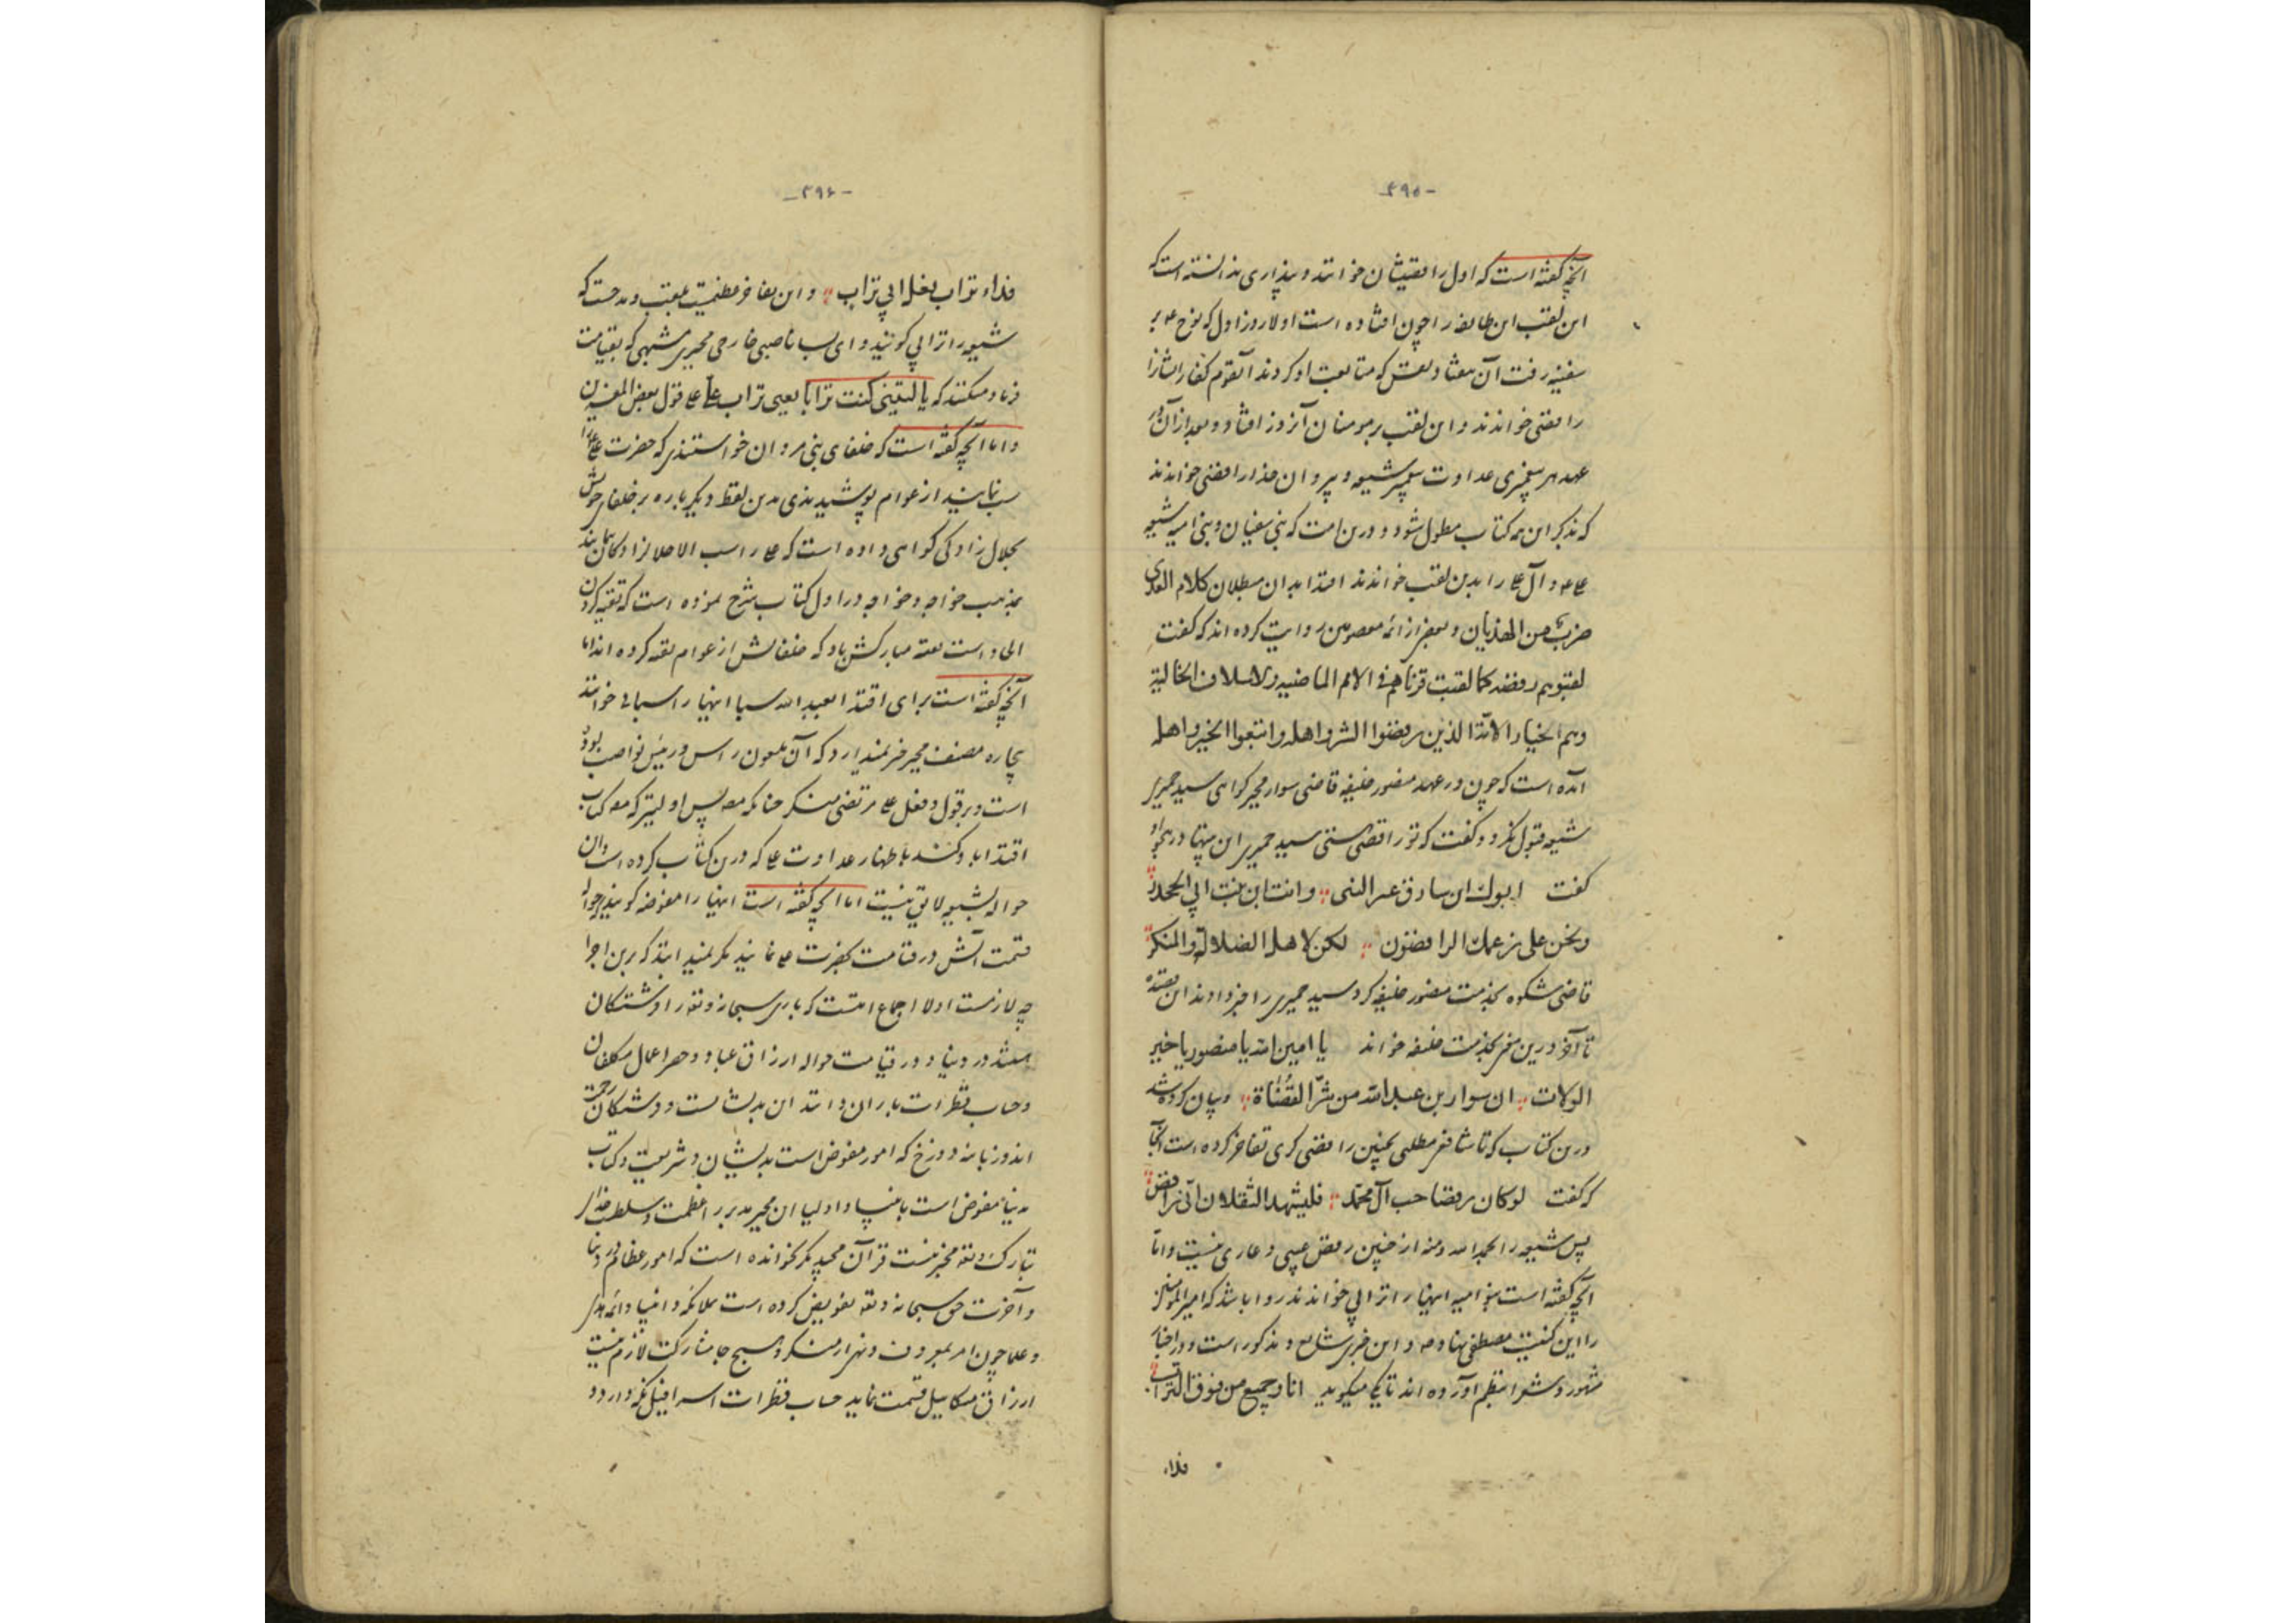 -۴۹۵-
آنچه گفته است که اول رافضیشان خوانند و پنداری ندانسته است که
این لقب این طایفه را چون افتاده است اولا روز اول که نوح ع بر
سفینه رفت آن هفتاد و که متابعت او کردند آنقوم کفار ایشانرا
رافضی خواندند و این لقب بر مومنان آنروز افتاد و بعد از آن در
عهد هر پیغمبری عداوت شیعه و پیروان خدا رافضی خواندند
که بذکر این همه کتاب مطول شود و درین امت که بنی سفیان و بنی امیه شیعه
علی ع و آل علی را بدین لقب خواندند اقتدا بدان مبطلان کلام العدی
ضرب من الهذیان و بعضی از ائمه معصومین روایت کرده اند که گفت
لقبوهم رفضه کما لقبت قرناهم فی الامم الماضیه والاسلاف الخالیة
وهم الخیار الا الذین رفضوا الشر واهله واتبعوا الخیر واهله
آمده است که چون در عهد منصور خلیفه قاضی سوار مجبر گواهی سید حمیر
شیعه قبول نکرد و گفت که تو رافضی هستی سید حمیری این بیتها در هجو او
گفت ابوك ابن سارق عنز النبی وانت ابن بنت ابی الجحدر
ونحن علی زعمك الرافضون لكن لاهل الضلالة والمنكر
قاضی شکوه بخدمت منصور خلیفه کرد سید حمیری را خبر دادند این قصیده
تا آخر درین بخدمت خلیفه خواند یا امین الله یا منصور یا خیر
الولات ان سوار بن عبدالله من شر القضاة و بیان کرده شد
درین کتاب که تا شافعی مطلبی بچنین رافضی گری تفاخر کرده است آنجا
که گفت لو کان رفضا حب آل محمد فلیشهد الثقلان انی رافض
پس شیعه را الحمدلله ومنه از چنین رفض عیبی و عاری نیست و اما
آنچه گفته است بنو امیه اینها را ترابی خواندند روا باشد که امیر المومنین
را این کنیت مصطفی نهاد ص و این خبری شایع و مذکور است و در اخبار
مشهور و شعرا بنظم آورده اند تا یکی میگوید انا وجمیع من فوق التراب
فداء
-۴۹۶-
فداء تراب نعل ابی تراب و این مفاخر منقبت و مدحست که
شیعه را ترابی گویند و ای بسا ناصبی خارجی مجبری مشبهی که بقیامت
فریاد میکنند که یا لیتنی کنت ترابا یعنی تراب علی علی قول بعض المفسرین
و اما آنچه گفته است که خلفای بنی مروان خواستندی که حضرت علی را
سب نمایند از عوام پوشیدندی بدین لفظ دیگر باره بر خلفای خویش
بحلال زادگی گواهی داده است که علی را سب الا حلالزادگان نمایند
بمذهب خواجه و خواجه در اول کتاب شرح نموده است که تقیه کردن
است تقیه مبارکش باد که خلفایش از عوام تقیه کرده اند اما
آنچه گفته است برای اقتدا بعبدالله سبا اینها را سبائی خوانند
بیچاره مصنف مجبر خبر نمیدارد که آن ملعون راس و رئیس نواصب بوده
است و بر قول و فعل علی مرتضی منکر چنانکه مصنف پس اولیتر که کتاب
اقتدا بدو کند باظهار عداوت علی که درین کتاب کرده است و آن
حواله بشیعه لایق نیست اما آنچه گفته است اینها را مفوضه گویند و حواله
قسمت آتش در قیامت بحضرت علی نمایند مگر نمیداند که برین اجرا
چه لازمست اولا اجماع امتست که باری سبحانه وتع را فرشتگان
هستند در دنیا و در قیامت حواله ارزاق عباد و حصر اعمال مکلفان
و حساب قطرات باران دانند این بدیشانست و فرشتگان رحمت
اند و زبانه دوزخ که امور مفوض است بدیشان و شریعت و کتاب
بدنیا مفوض است بانبیا و اولیا این مجبر مدبر را عظمت و سلطنت خدای
تبارک وتع مخبر نیست قرآن مجید مگر نخوانده است که امور عظائم در دنیا
و آخرت حق سبحانه وتع تفویض کرده است بملائکه و انبیا و ائمه هدی
و علما چون امر بمعروف و نهی از منکر و هیچ جا مشارکت لازم نیست
ارزاق میکاییل قسمت نماید حساب قطرات اسرافیل نگه دارد و